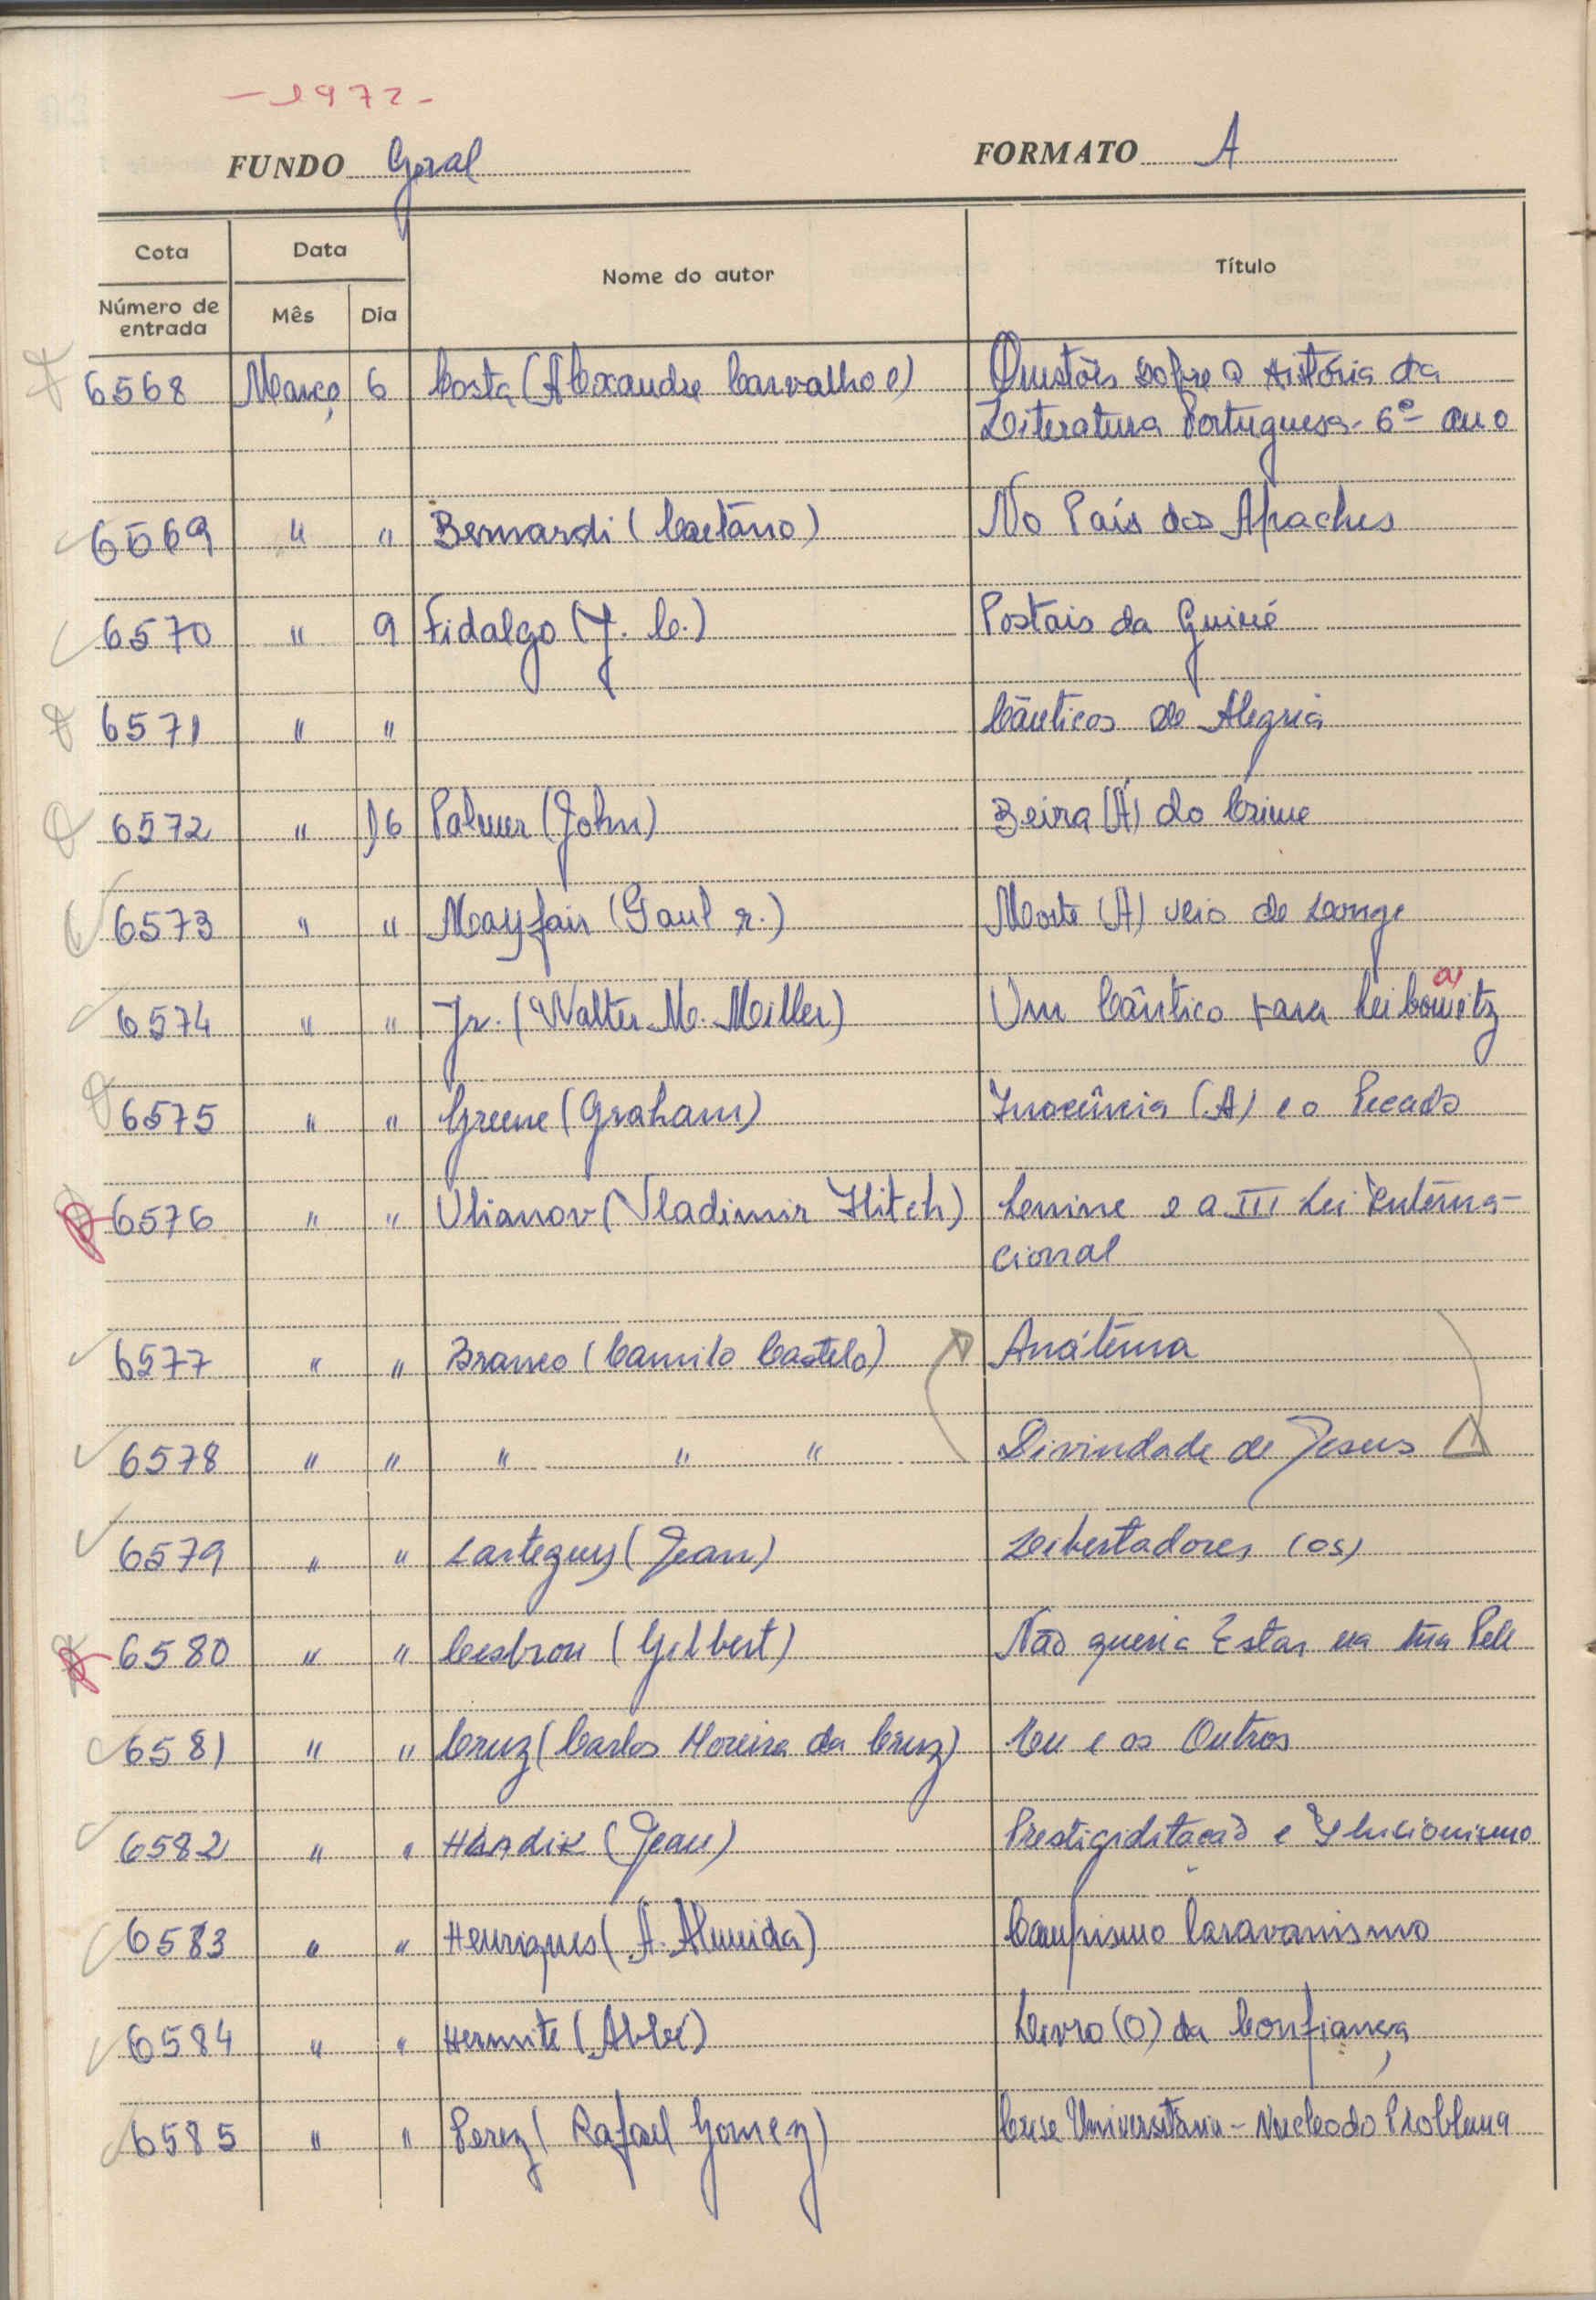 - 1972 -
FUNDO Geral FORMATO A
Cota Data Nome do autor Título
Número de entrada Mês Dia
6568 Março 6 Costa (Alexandre Carvalho e) Questões sobre a História da
Literatura Portuguesa - 6º ano
6569 " " Bernardi (Caetano) No País dos Apaches
6570 " 9 Fidalgo (J. C.) Postais da Guiné
6571 " " Cânticos de Alegria
6572 " 16 Palmer (John) Beira (À) do Crime
6573 " " Mayfair (Paul r.) Morte (A) veio de Longe
6574 " " Jr. (Walter M. Miller) Um Cântico para Leibowitz
6575 " " Greene (Graham) Inocência (A) e o Pecado
6576 " " Ulianov (Vladimir Ilitch) Lenine e a III Lei Interna-
cional
6577 " " Branco (Camilo Castelo) Anátema
6578 " " " " " Divindade de Jesus
6579 " " Larteguy (Jean) Libertadores (os)
6580 " " Cesbron (Gilbert) Não queria Estar na tua Pele
6581 " " Cruz (Carlos Moreira da Cruz) Eu e os Outros
6582 " " Hladik (Jean) Prestigiditação e Ilusionismo
6583 " " Henriques (A. Almeida) Campismo Caravanismo
6584 " " Hermite (Abbé) Livro (O) da Confiança
6585 " " Perez (Rafael Gomez) Crise Universitária - Nucleo do Problema